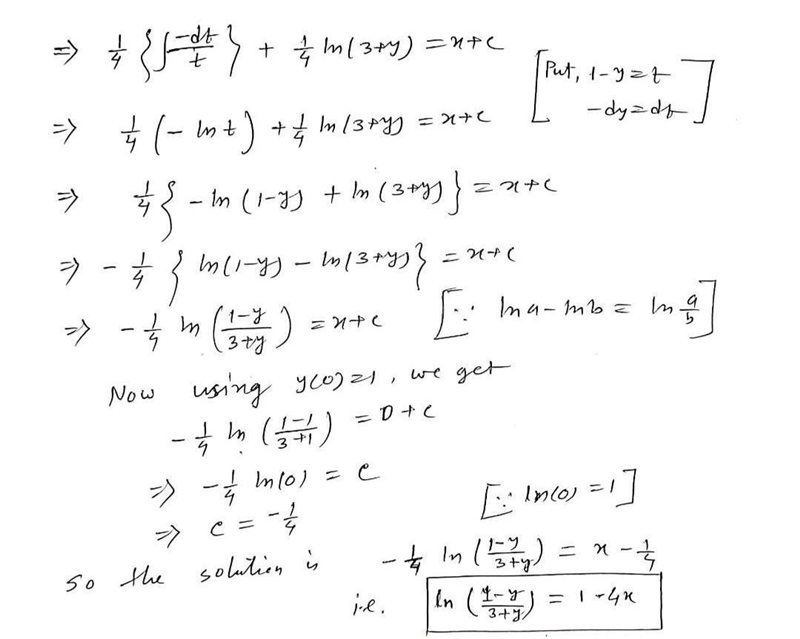 ⇒ 1/4 {∫ -dt/t} + 1/4 ln(3+y) = x+c [Put, 1-y=t
-dy=dt]
⇒ 1/4 (- ln t) + 1/4 ln(3+y) = x+c
⇒ 1/4 { - ln (1-y) + ln (3+y) } = x+c
⇒ - 1/4 { ln(1-y) - ln(3+y) } = x+c
⇒ - 1/4 ln ((1-y)/(3+y)) = x+c [∵ ln a - ln b = ln a/b]
Now using y(0)=1, we get
- 1/4 ln ((1-1)/(3+1)) = 0+c
⇒ - 1/4 ln(0) = c
⇒ c = -1/4 [∵ ln(0) = 1]
So the solution is - 1/4 ln ((1-y)/(3+y)) = x - 1/4
i.e. ln ((1-y)/(3+y)) = 1-4x